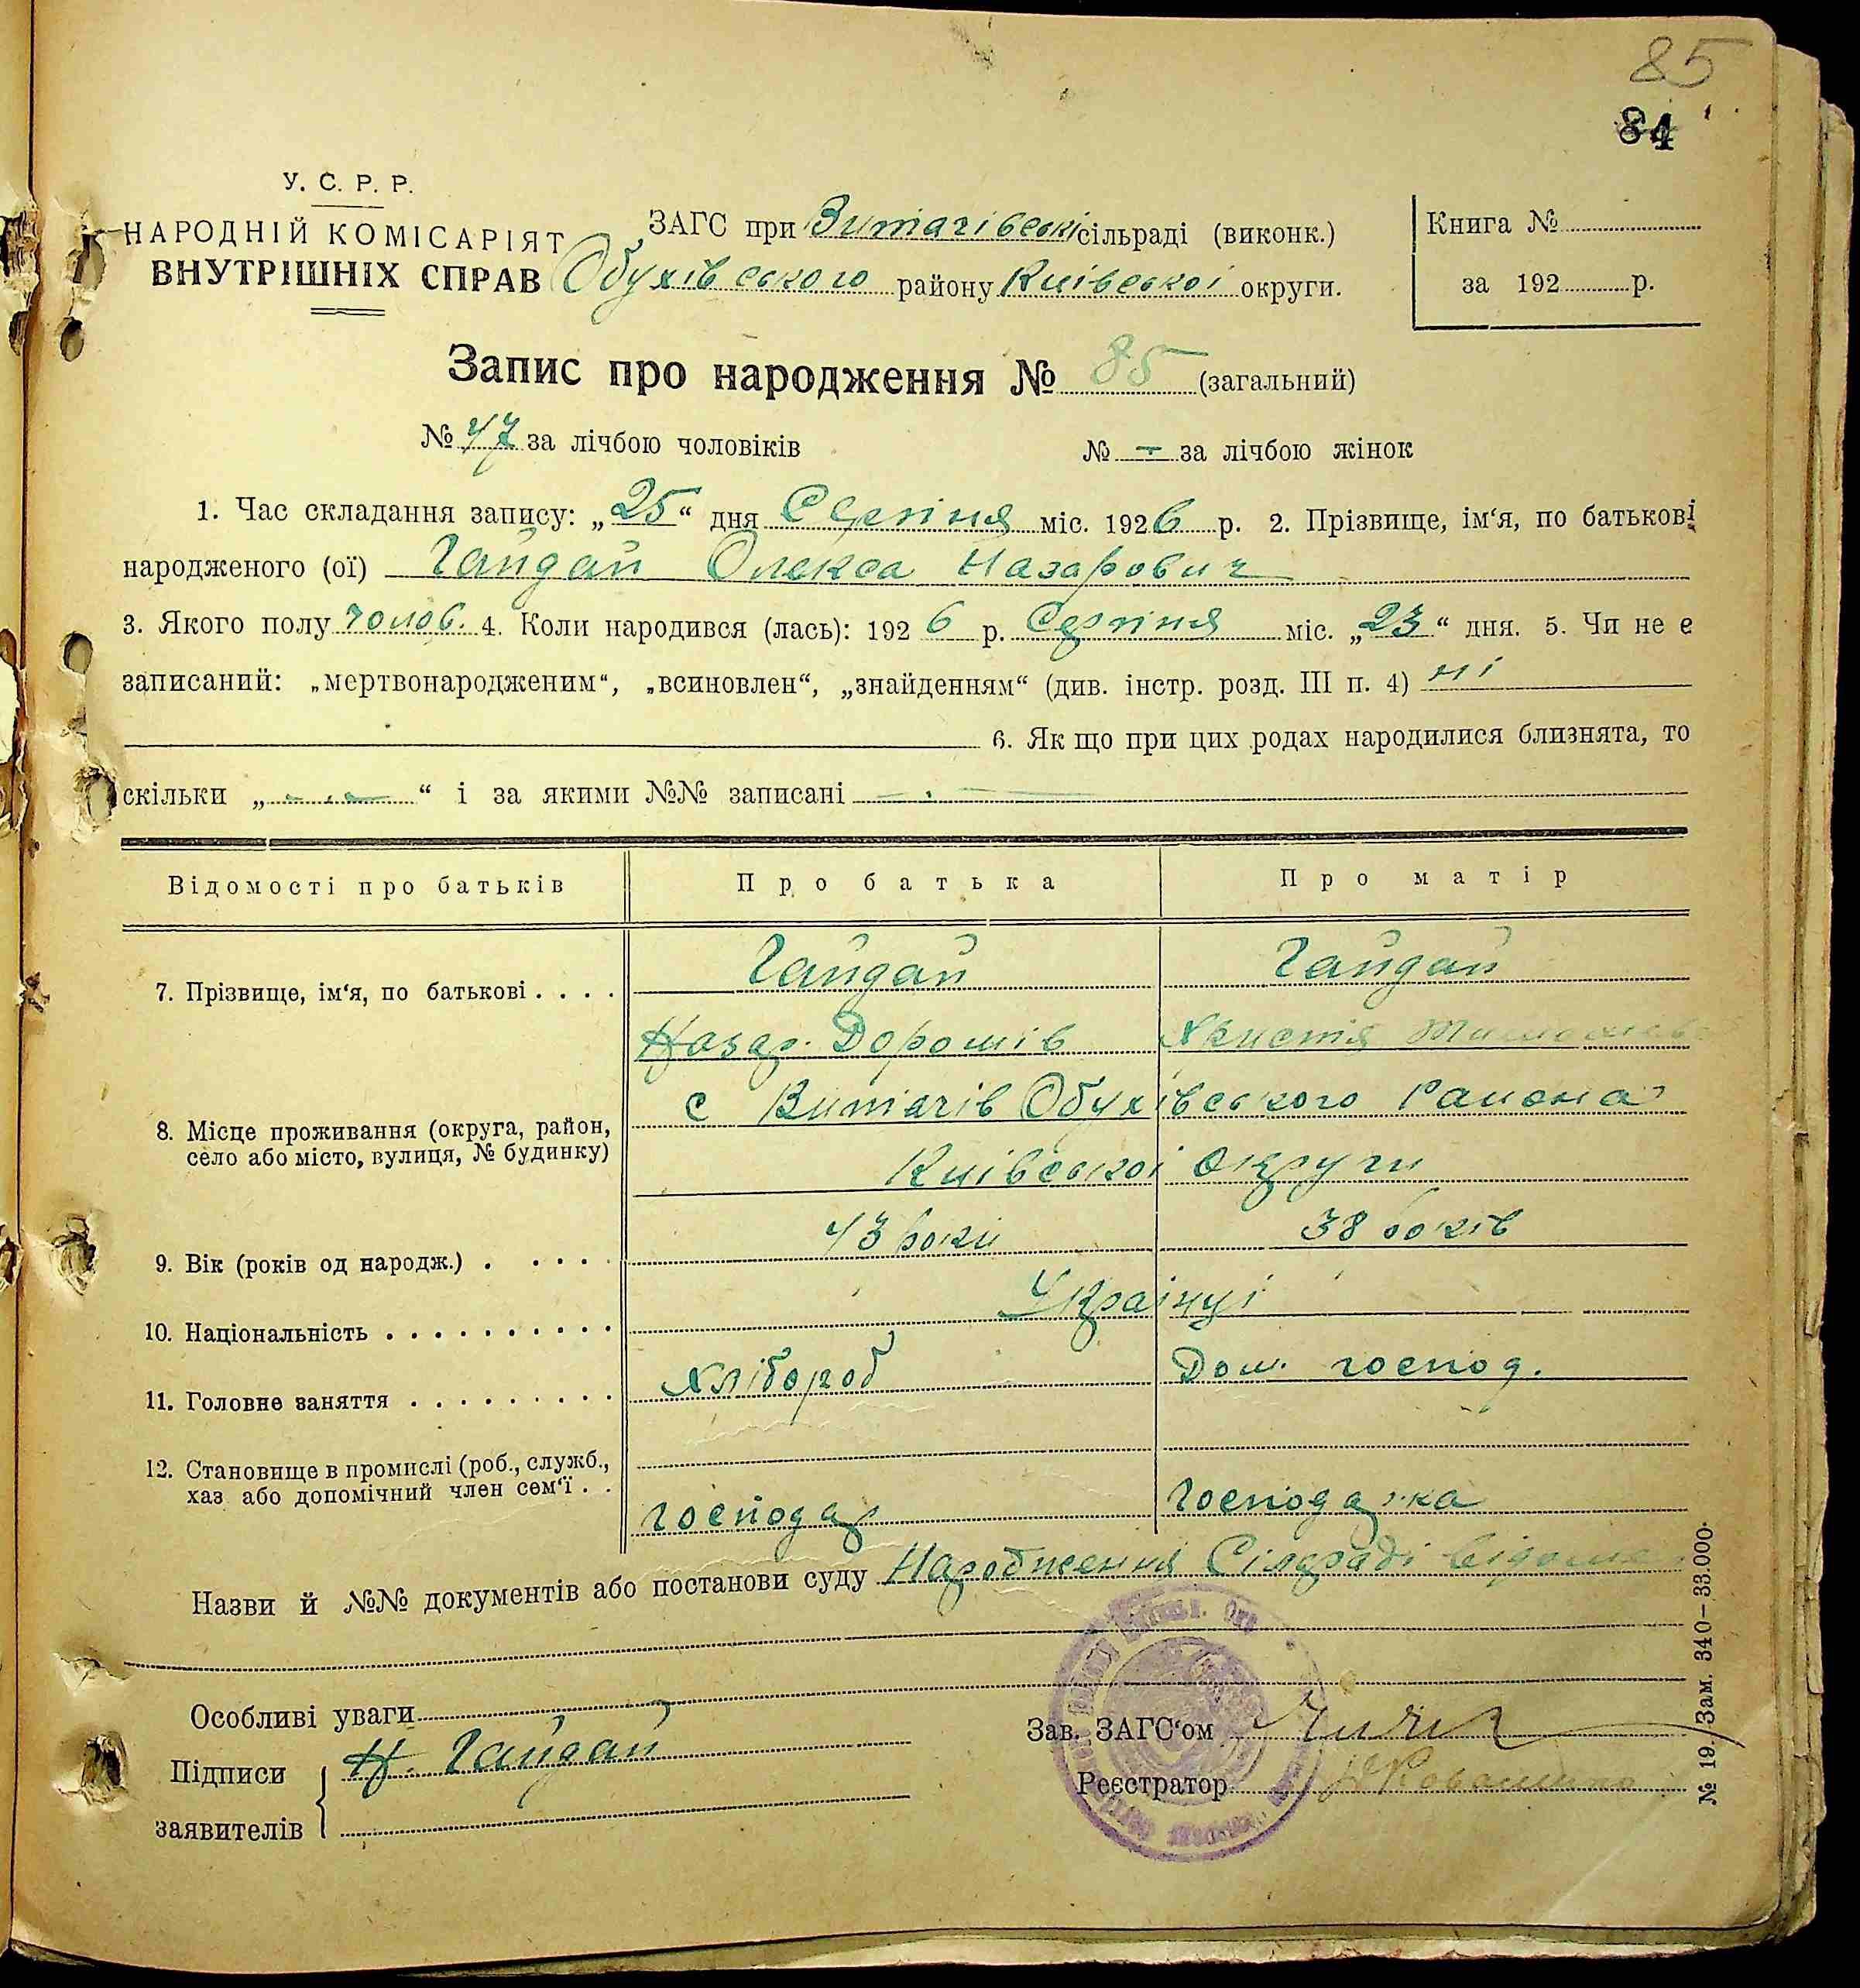 85
84
У. С. Р. Р.
НАРОДНІЙ КОМІСАРІЯТ
ВНУТРІШНІХ СПРАВ
ЗАГС при Витачівські сільраді (виконк.)
Обухівського району Київської округи.
Книга №
за 192 р.
Запис про народження № 85 (загальний)
№ 47 за лічбою чоловіків № — за лічбою жінок
1. Час складання запису: „25“ дня Серпня міс. 1926 р. 2. Прізвище, ім‘я, по батькові
народженого (ої) Гайдай Олекса Назарович
3. Якого полу чолов. 4. Коли народився (лась): 1926 р. Серпня міс. „23“ дня. 5. Чи не є
записаний: „мертвонародженим“, „всиновлен“, „знайденням“ (див. інстр. розд. III п. 4) ні
6. Як що при цих родах народилися близнята, то
скільки „ — “ і за якими №№ записані —
Відомості про батьків Про батька Про матір
7. Прізвище, ім‘я, по батькові . . . . Гайдай Гайдай
Назар. Дорошів Христя
8. Місце проживання (округа, район, село або місто, вулиця, № будинку) с Витачів Обухівського Района
Київської округи
9. Вік (років од народж.) . . . . . 43 роки 38 років
10. Національність . . . . . . . . . . Українці
11. Головне заняття . . . . . . . . . Хлібороб Дом. господ.
12. Становище в промислі (роб., служб.,
хаз або допомічний член сем‘ї . . господар Господарка
Назви й №№ документів або постанови суду Народження Сільраді відоме
Особливі уваги
Підписи заявителів Н. Гайдай
Зав. ЗАГС‘ом
Реєстратор
№ 19. Зам. 340—33.000.